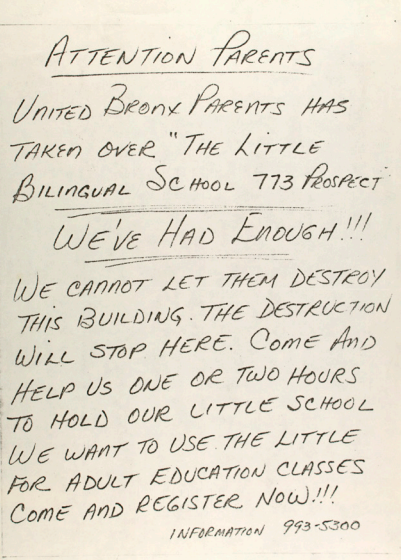 ATTENTION PARENTS
UNITED BRONX PARENTS HAS
TAKEN OVER "THE LITTLE
BILINGUAL SCHOOL 773 PROSPECT
WE'VE HAD ENOUGH!!!
WE CANNOT LET THEM DESTROY
THIS BUILDING. THE DESTRUCTION
WILL STOP HERE. COME AND
HELP US ONE OR TWO HOURS
TO HOLD OUR LITTLE SCHOOL
WE WANT TO USE THE LITTLE
FOR ADULT EDUCATION CLASSES
COME AND REGISTER NOW!!!
INFORMATION 993-5300